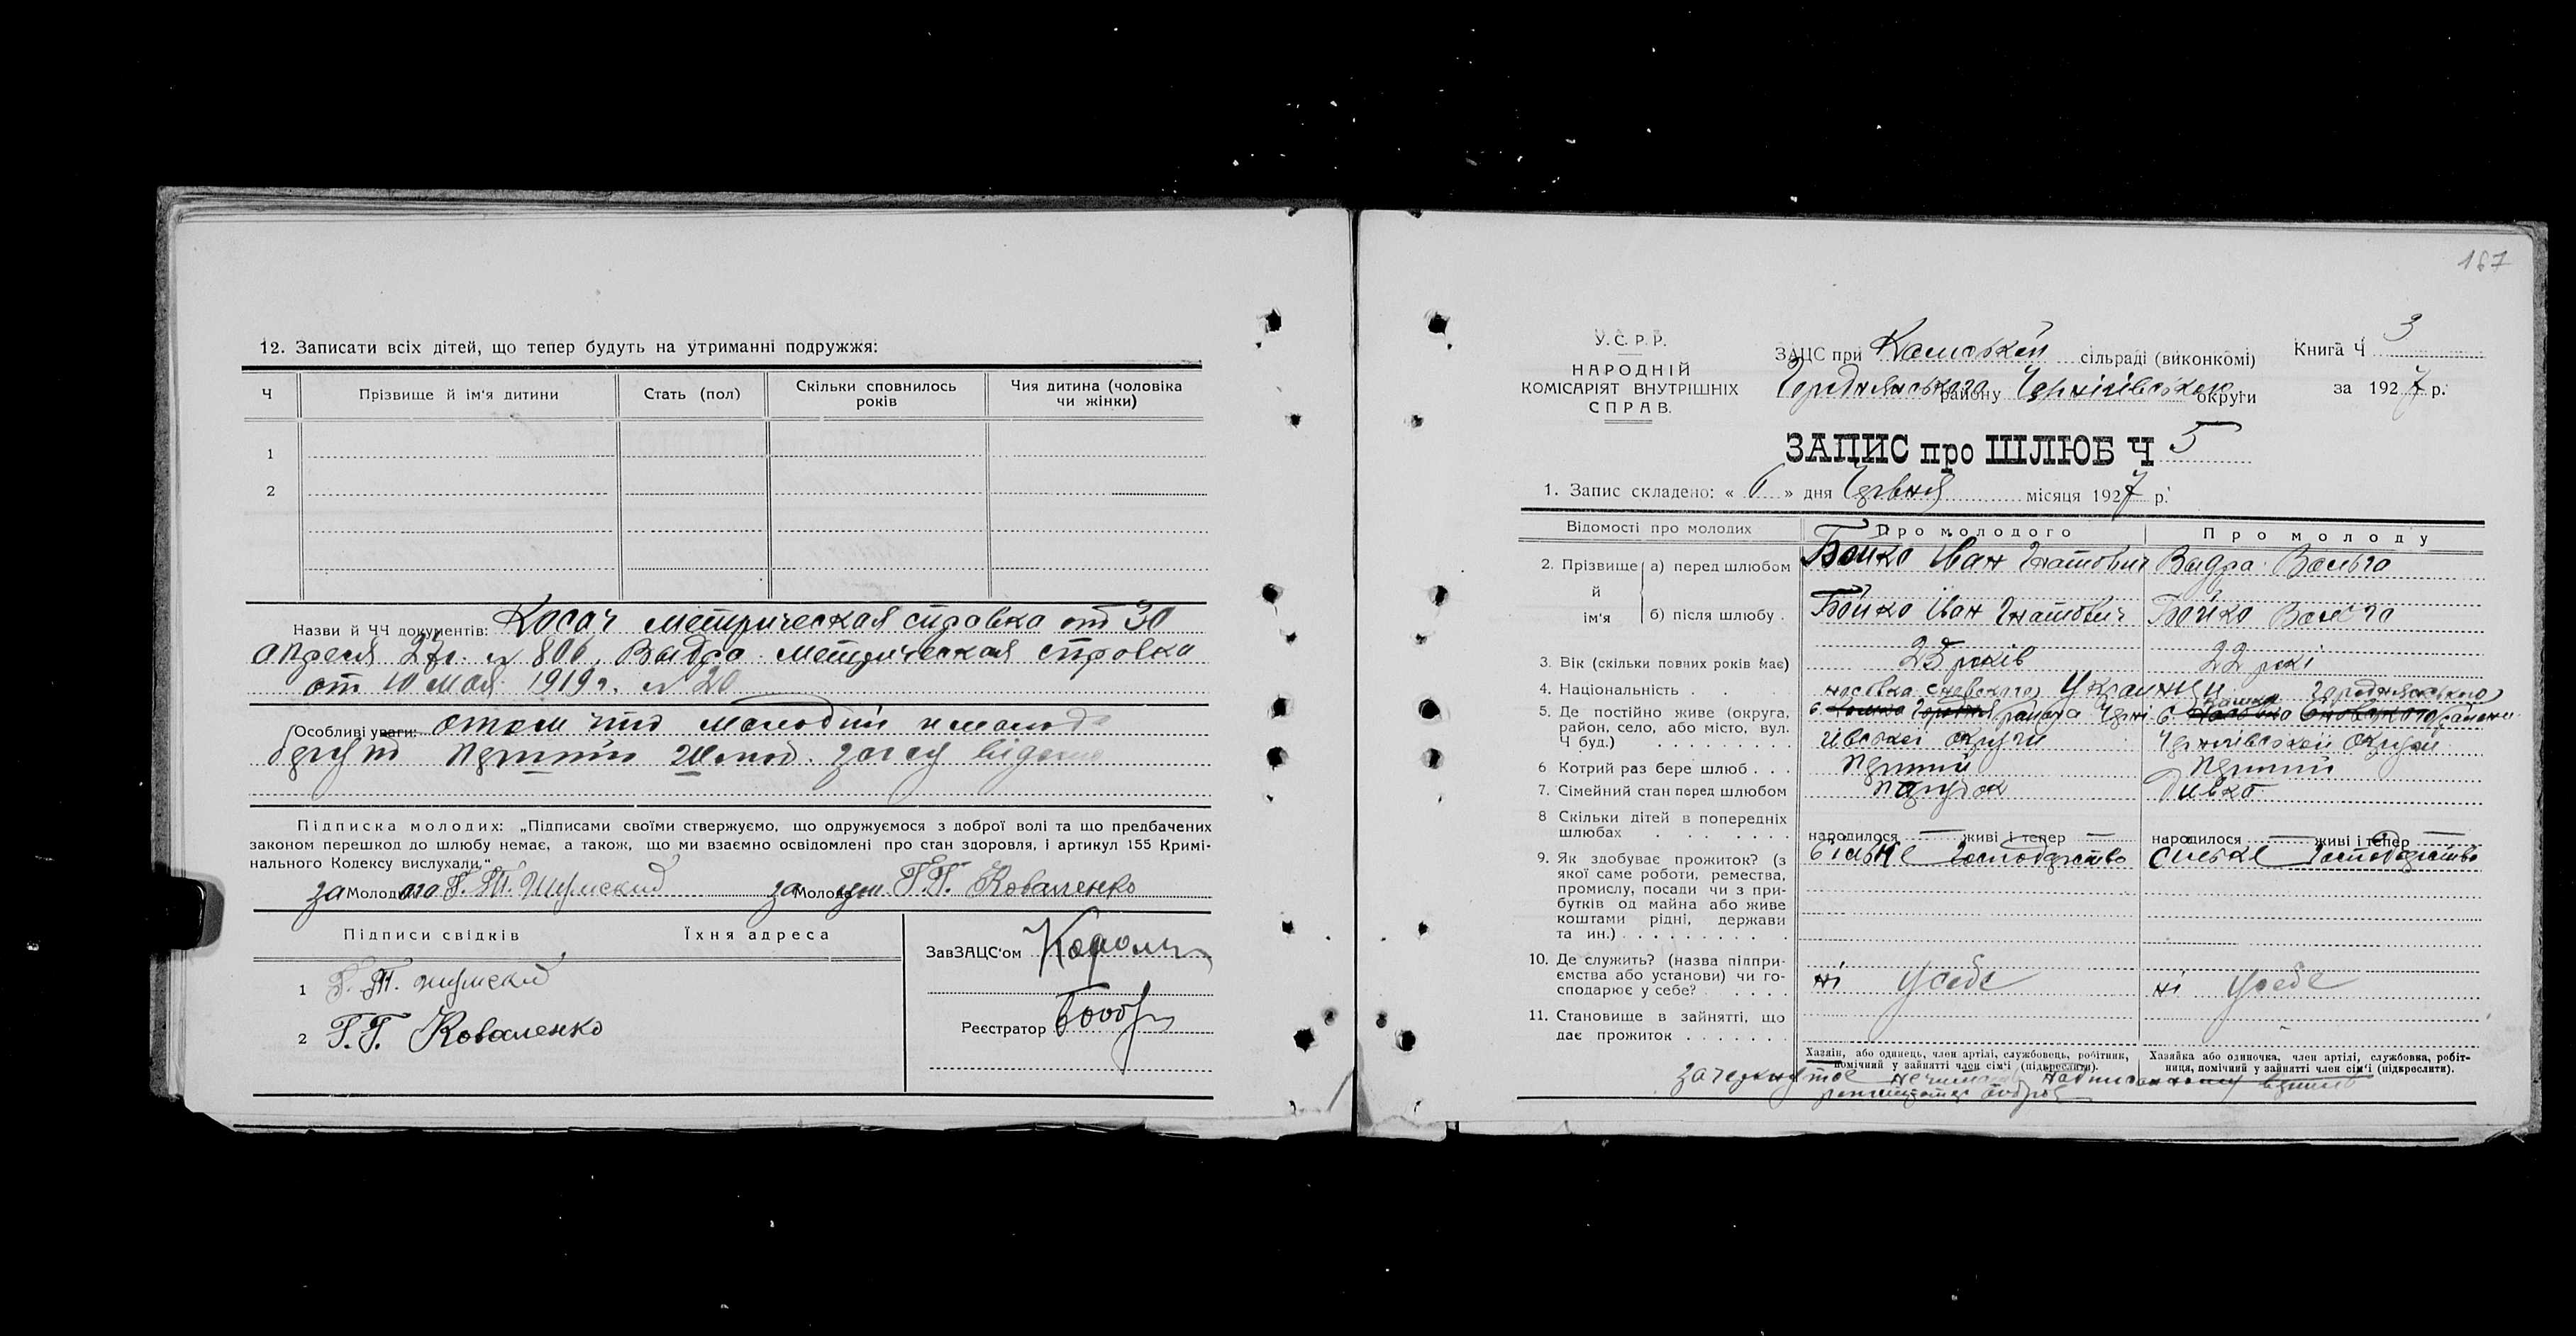 12. Записати всіх дітей, що тепер будуть на утриманні подружжя:
Ч
Прізвище й ім'я дитини
Стать (пол)
Скільки сповнилось років
Чия дитина (чоловіка чи жінки)
1
2
Назви й ЧЧ документів: Косач метрическая справка от 30
апреля 27г. № 806, Выдра метрическая справка
от 10 мая 1919г. № 20
Особливі уваги: о том что молодий и молода
беруть
Підписка молодих: „Підписами своїми стверджуємо, що одружуємося з доброї волі та що предбачених
законом перешкод до шлюбу немає, а також, що ми взаємно освідомлені про стан здоровля, і артикул 155 Кримі-
нального Кодексу вислухали."
за Молодого Г. Т. Шумский за Молоду Г.Г. Коваленко
Підписи свідків Їхня адреса
1 Г. Т. Шумский
2 Г.Г. Коваленко
ЗавЗАЦС'ом
Реєстратор Бобр
167
У.С.Р.Р.
НАРОДНІЙ
КОМІСАРІЯТ ВНУТРІШНІХ
СПРАВ.
ЗАЦС при сільраді (виконкомі)
Городнянського району Чернігівської округи
Книга Ч 3
за 1927 р.
ЗАПИС про ШЛЮБ Ч 5
1. Запис складено: « 6 » дня Червня місяця 1927 р.
Відомості про молодих
Про молодого
Про молоду
2. Прізвище й ім'я
а) перед шлюбом Бойко Іван Гнатович Выдра
б) після шлюбу . Бойко Іван Гнатович Бойко
3. Вік (скільки повних років має) 25 років 22 рокі
4. Національність . . Українци
5. Де постійно живе (округа,
район, село, або місто, вул.
Ч буд.) . . . . . . . .
района Черні
гівської округи
Городнянського
района
Чернігівської округи
6 Котрий раз бере шлюб . . . перший перший
7. Сімейний стан перед шлюбом парубок дивка
8 Скільки дітей в попередніх
шлюбах . . . . . .
народилося — живі і тепер —
народилося — живі і тепер —
9. Як здобуває прожиток? (з
якої саме роботи, ремества,
промислу, посади чи з при-
бутків од майна або живе
коштами рідні, держави
та ин.) . . . . . . . . .
господарство
сильке господарство
10. Де служить? (назва підпри-
ємства або установи) чи го-
сподарює у себе? . . . .
ні у себе
ні у себе
11. Становище в зайнятті, що
дає прожиток . . . . . . .
Хазяїн, або одинець, член артілі, службовець, робітник,
помічний у зайнятті член сім'ї (підкреслити).
Хазяйка або одиночка, член артілі, службовка, робіт-
ниця, помічний у зайнятті член сім'ї (підкреслити).
зачеркнутое